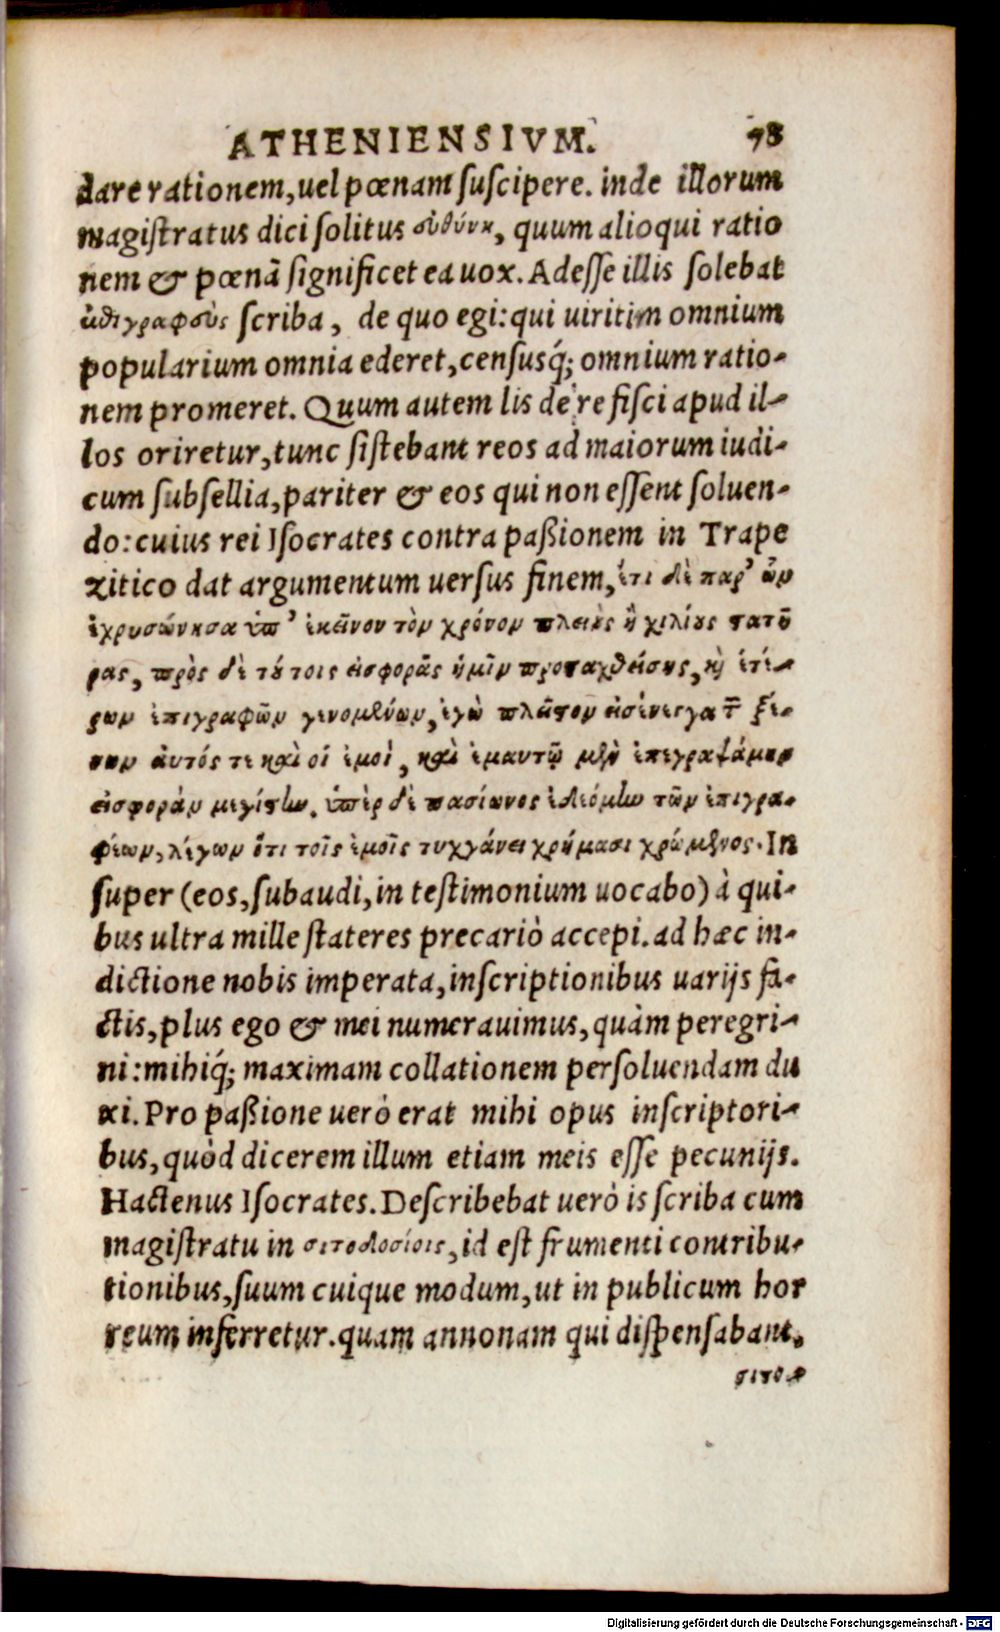 ATHENIENSIVM. 78
dare rationem, uel pœnam suscipere. inde illorum
magistratus dici solitus εὐθύνα, quum alioqui ratio
nem & pœnã significet ea uox. Adesse illis solebat
scriba, de quo egi: qui uiritim omnium
popularium omnia ederet, censusq́; omnium ratio-
nem promeret. Quum autem lis de re fisci apud il-
los oriretur, tunc sistebant reos ad maiorum iudi-
cum subsellia, pariter & eos qui non essent soluen-
do: cuius rei Isocrates contra paßionem in Trape
zitico dat argumentum uersus finem, ἔτι δὲ παρ' ὧν
ἐχρυσώνησα ὑπ' ἐκεῖνον τὸν χρόνον πλείους ἢ χιλίους στατῆ
ρας, πρὸς δὲ τούτοις εἰσφορᾶς ἡμῖν προσταχθείσης, καὶ ἑτέ-
ρων ἐπιγραφῶν γενομένων, ἐγὼ πλεῖστον εἰσένεγκα τῶν ξέ-
νων αὐτός τε καὶ οἱ ἐμοὶ, καὶ ἐμαυτῷ μὲν ἐπεγραψάμην
εἰσφορὰν μεγίστην. ὑπὲρ δὲ πασίωνος ἐδεόμην τῶν ἐπιγρα-
φέων, λέγων ὅτι τοῖς ἐμοῖς τυγχάνει χρήμασι χρώμενος. In
super (eos, subaudi, in testimonium uocabo) à qui-
bus ultra mille stateres precariò accepi. ad hæc in-
dictione nobis imperata, inscriptionibus uarijs fa-
ctis, plus ego & mei numerauimus, quàm peregri-
ni: mihiq́; maximam collationem persoluendam du
xi. Pro paßione uerò erat mihi opus inscriptori-
bus, quòd dicerem illum etiam meis esse pecunijs.
Hactenus Isocrates. Describebat uerò is scriba cum
magistratu in σιτοδοσίαις, id est frumenti contribu-
tionibus, suum cuique modum, ut in publicum hor
reum inferretur. quam annonam qui dispensabant,
σιτο-
Digitalisierung gefördert durch die Deutsche Forschungsgemeinschaft - DFG